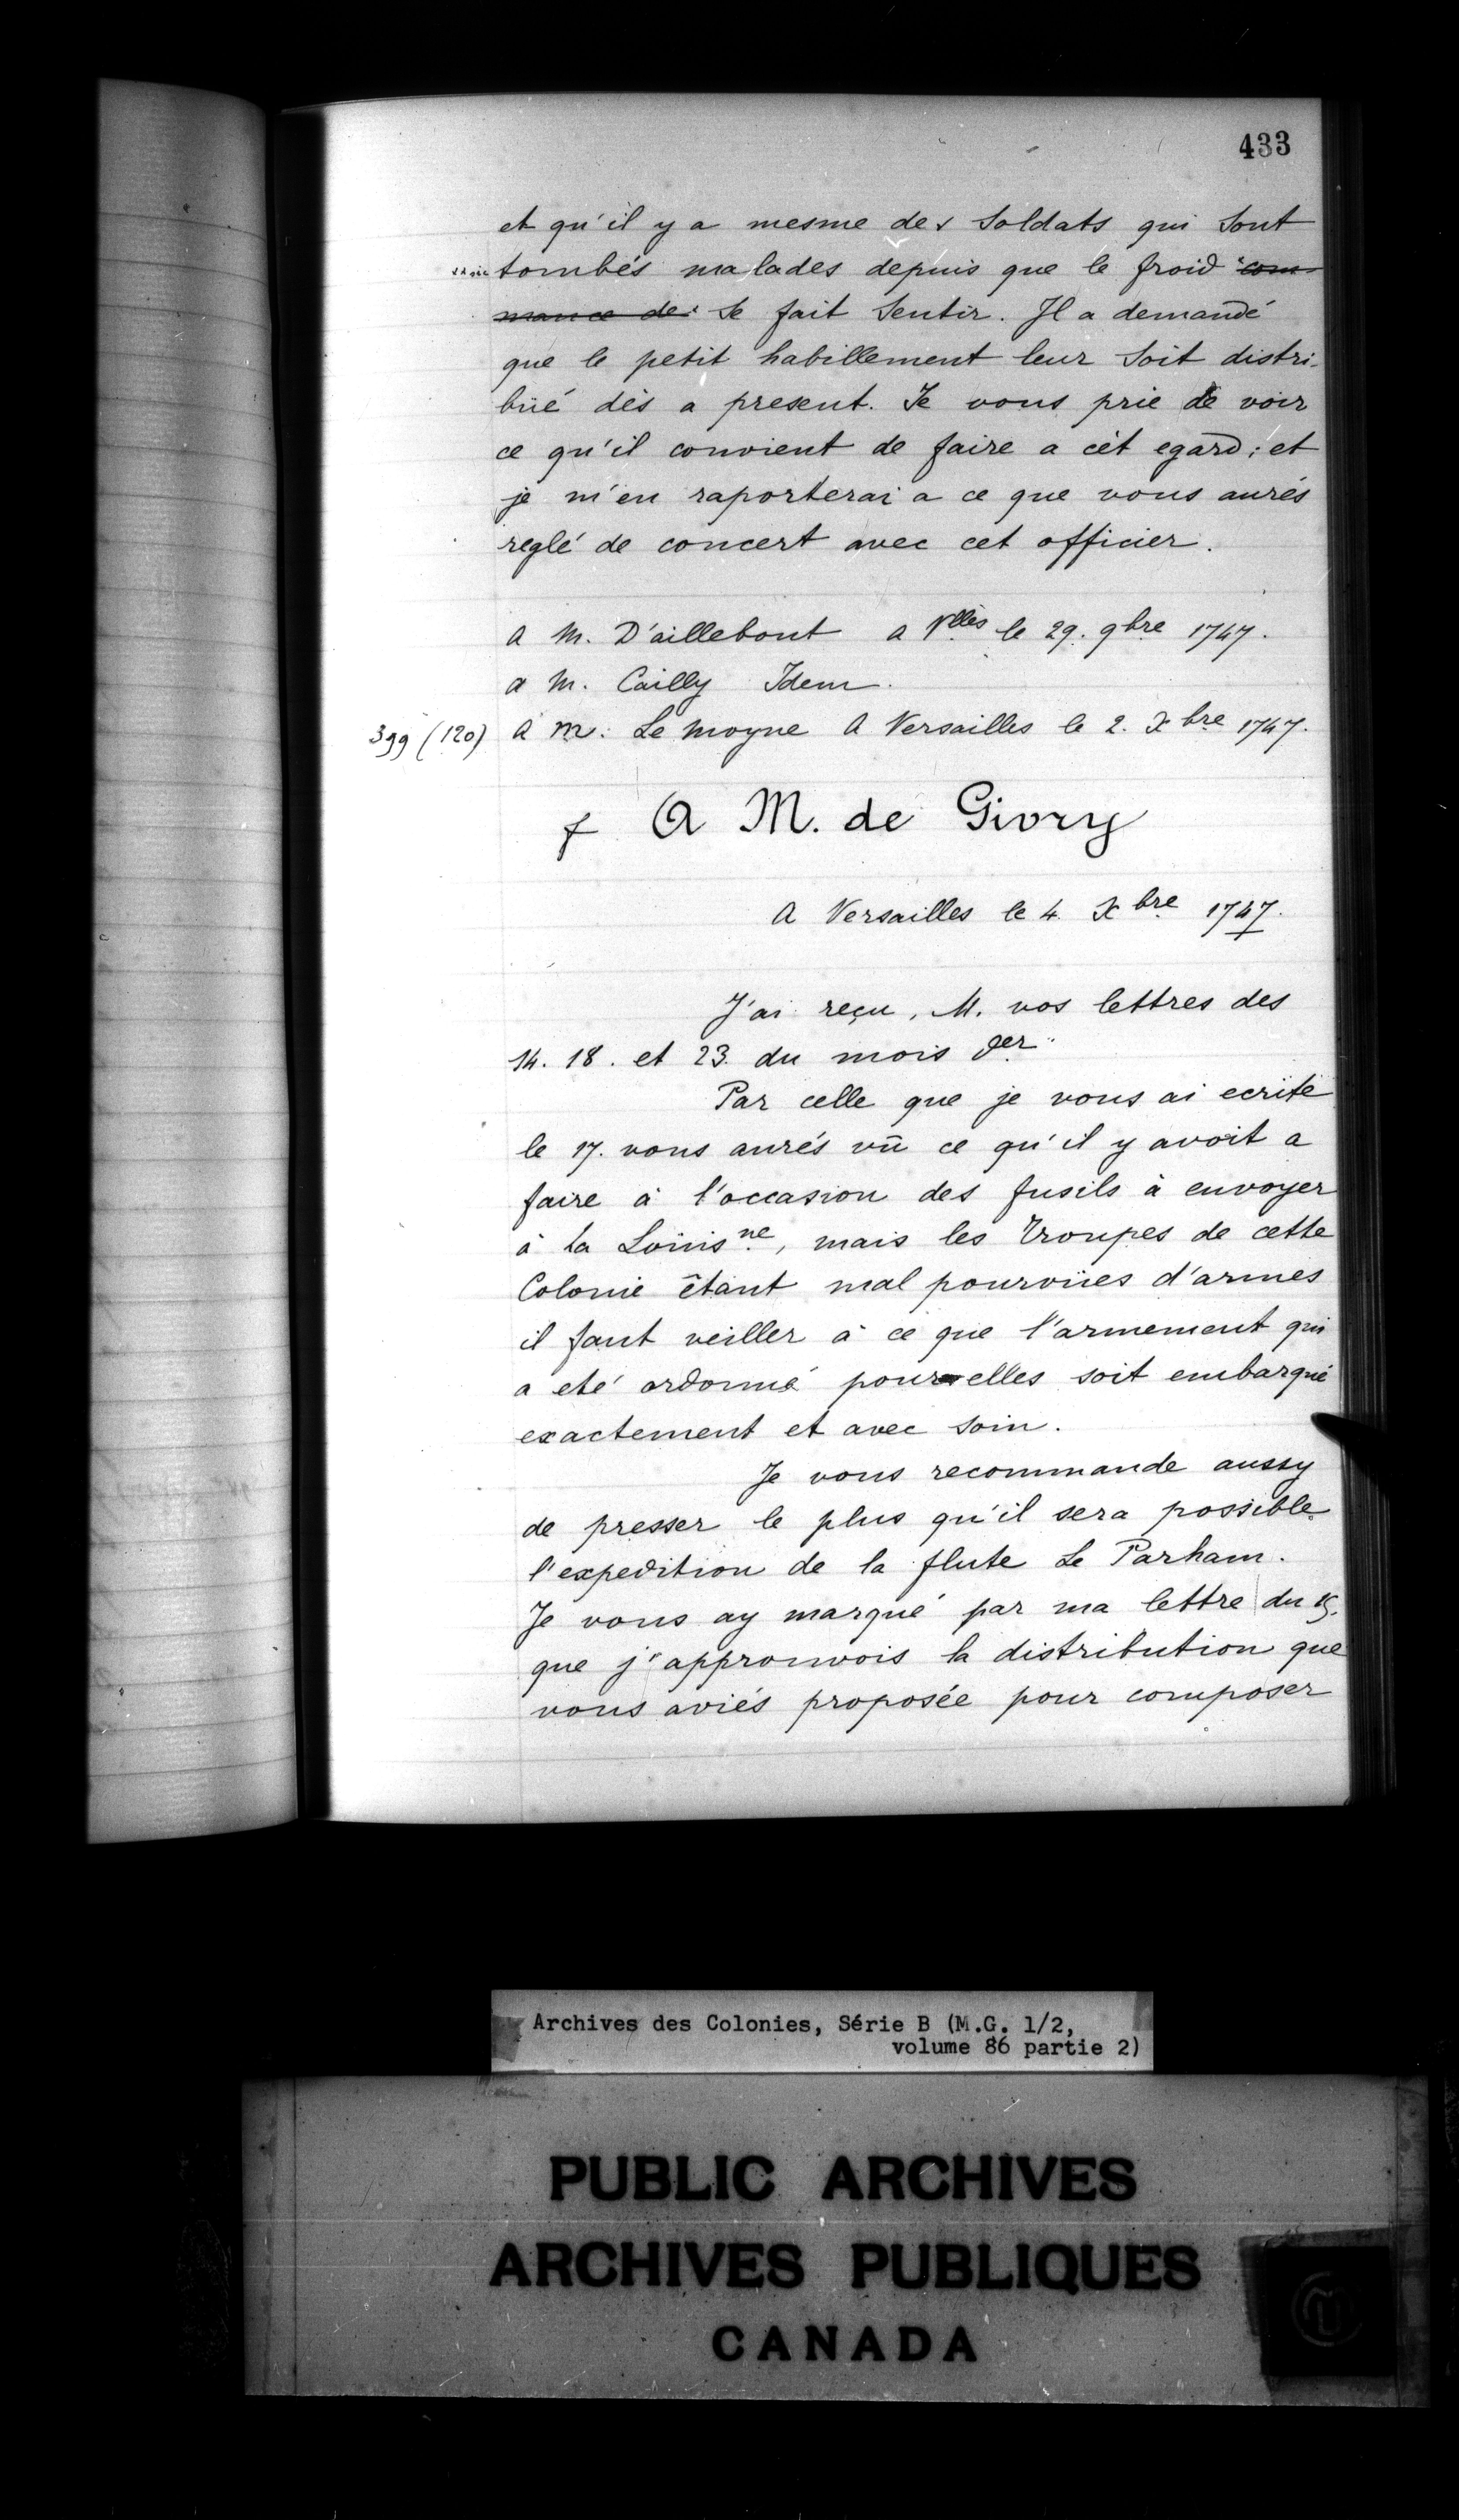 433
et qu'il y a mesme des Soldats qui Sont
tombés malades depuis que le froid com-
mance de Se fait Sentir. Il a demandé
que le petit habillement leur Soit distri-
büé dès a present. Je vous prie de voir
ce qu'il convient de faire a cèt egard; et
je m'en raporterai a ce que vous aurés
reglé de concert avec cet officier.
a M. D'aillebout a Vlles le 29. 9bre 1747.
a M. Cailly Idem.
399 (120) A M. Le moyne A Versailles le 2. Xbre 1747.
f A M. de Givry
A Versailles le 4 Xbre 1747.
J'ai reçu, M. vos lettres des
14. 18. et 23. du mois der
Par celle que je vous ai ecrite
le 17. vous aurés vû ce qu'il y avoit a
faire à l'occasion des fusils à envoyer
à la Loüisne, mais les Troupes de cette
Colonie êtant mal pourvües d'armes
il faut veiller à ce que l'armement qui
a eté ordonné pour elles soit embarqué
exactement et avec soin.
Je vous recommande aussy
de presser le plus qu'il sera possible
l'expedition de la flute Le Parham.
Je vous ay marqué par ma lettre du
que j'approuvois la distribution que
vous aviés proposée pour composer
Archives des Colonies, Série B (M.G. 1/2,
volume 86 partie 2)
PUBLIC ARCHIVES
ARCHIVES PUBLIQUES
CANADA